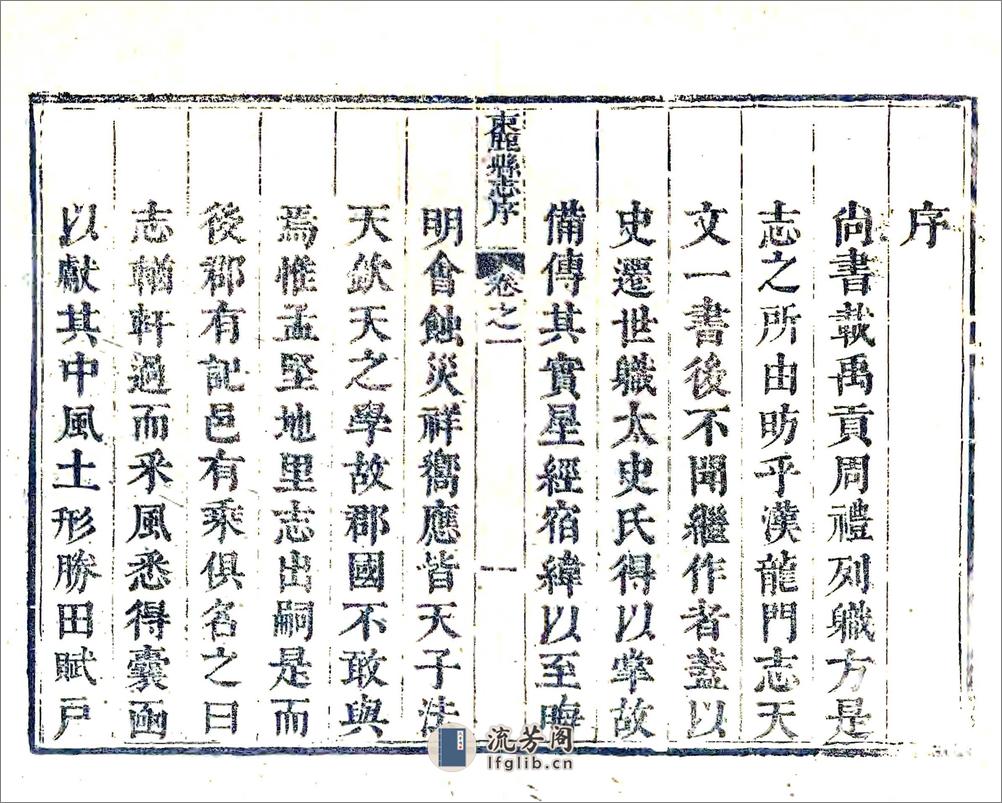 序
尙書載禹貢周禮列職方是
志之所由昉乎漢龍門志天
文一書後不聞繼作者蓋以
史遷世職太史氏得以掌故
備傳其實星經宿緯以至晦
束鹿縣志序 卷之一 一
明會蝕災祥嚮應皆天子法
天欽天之學故郡國不敢與
焉惟孟堅地里志出嗣是而
後郡有記邑有乘俱名之曰
志輶軒過而采風悉得囊函
以獻其中風土形勝田賦戸
流芳阁
lfglib.cn